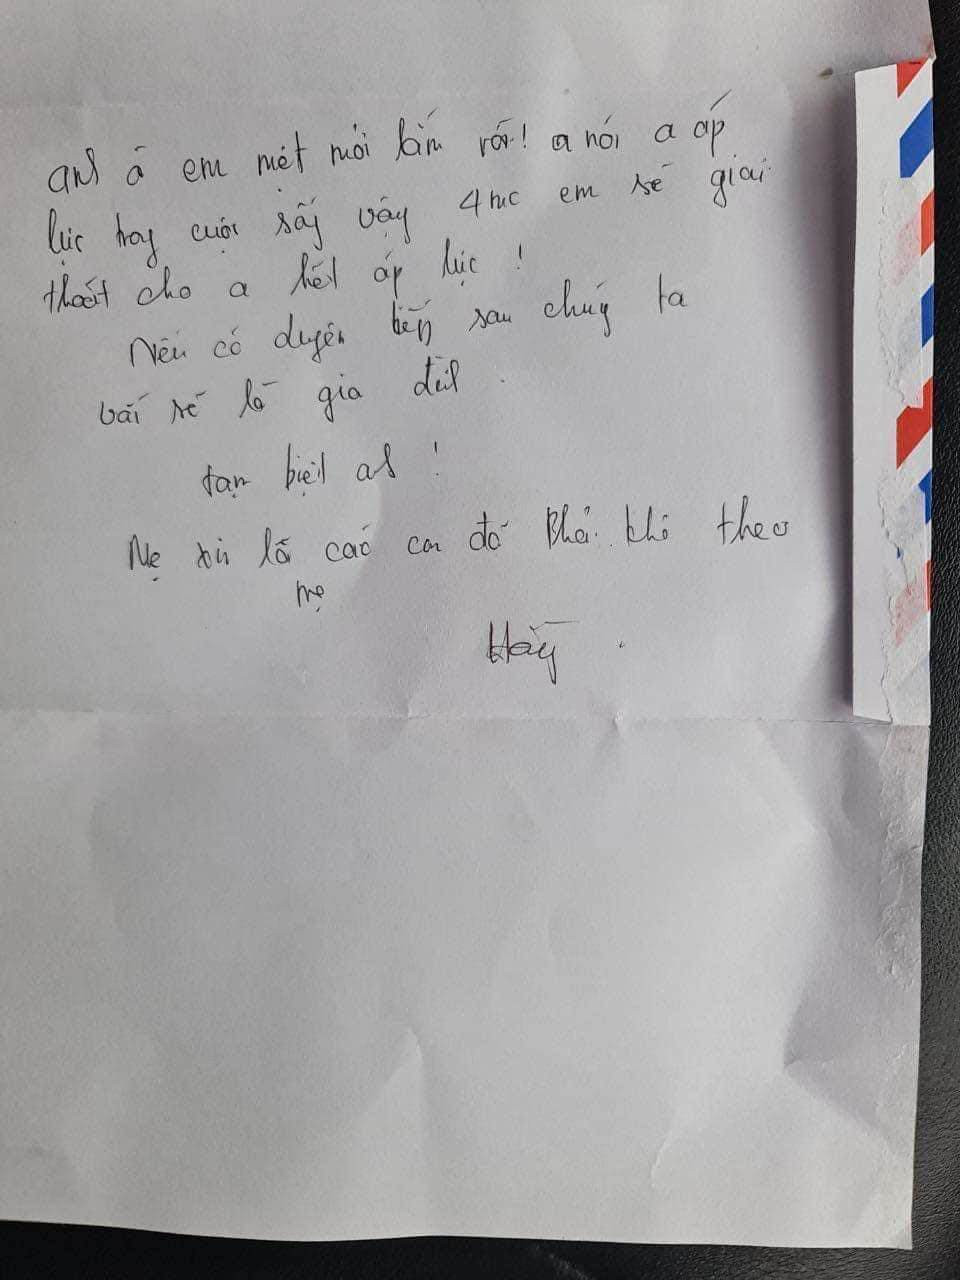 anh à em mệt mỏi lắm rồi! a nói a áp
lực hay cuộc sống vậy em sẽ giải
thoát cho a hết áp lực!
Nếu có duyên kiếp sau chúng ta
vẫn sẽ là gia đình.
tạm biệt anh!
Mẹ xin lỗi các con đã phải theo
mẹ